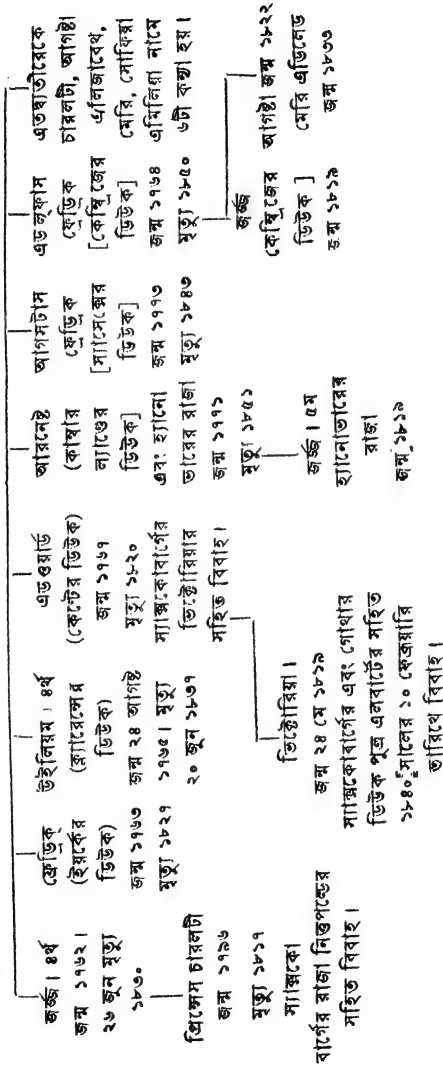 জর্জ্জ। ৪র্থ
জন্ম ১৭৬২।
২৬ জুন মৃত্যু
১৮৩০
প্রিন্সেস চারলটী
জন্ম ১৭৯৬
মৃত্যু ১৮১৭
স্যাক্সকো
বার্গের রাজা লিওপল্ডের
সহিত বিবাহ।
ফ্রেড্রিক্
(ইয়র্কের
ডিউক)
জন্ম ১৭৬৩
মৃত্যু ১৮২৭
উইলিয়ম। ৪র্থ
(ক্ল্যারেন্সের
ডিউক)
জন্ম ২৪ আগষ্ট
১৭৬৫। মৃত্যু
২০ জুন ১৮৩৭
এডওয়ার্ড
(কেন্টের ডিউক)
জন্ম ১৭৬৭
মৃত্যু ১৮২০
স্যাক্সকোবার্গের
ভিক্টোরিয়ার
সহিত বিবাহ।
ভিক্টোরিয়া।
জন্ম ২৪ মে ১৮১৯
স্যাক্সকোবার্গের এবং গোথার
ডিউক পুত্র এলবার্টের সহিত
১৮৪০ সালের ১০ ফেব্রুয়ারি
তারিখে বিবাহ।
আরনেষ্ট
(কাম্বার
ল্যাণ্ডের
ডিউক]
এবং হ্যানো
ভারের রাজা
জন্ম ১৭৭১
মৃত্যু ১৮৫১
জর্জ্জ। ৫ম
হ্যানোভারের
রাজা
জন্ম ১৮১৯
আগসটাস
ফ্রেড্রিক
[স্যাসেক্সের
ডিউক]
জন্ম ১৭৭৩
মৃত্যু ১৮৪৩
এডল্‌ফাস
ফ্রেড্রিক
[কেম্ব্রিজের
ডিউক]
জন্ম ১৭৬৪
মৃত্যু ১৮৫০
জর্জ্জ
কেম্ব্রিজের
ডিউক ]
জন্ম ১৮১৯
আগষ্টা জন্ম ১৮২২
মেরি এডিলেড
জন্ম ১৮৩৩
এতদ্ব্যতীরেকে
চারলটী, আগষ্টা
এলিজাবেথ,
মেরি, সোফিয়া
এমিলিয়া নামে
৬টী কন্যা হয়।